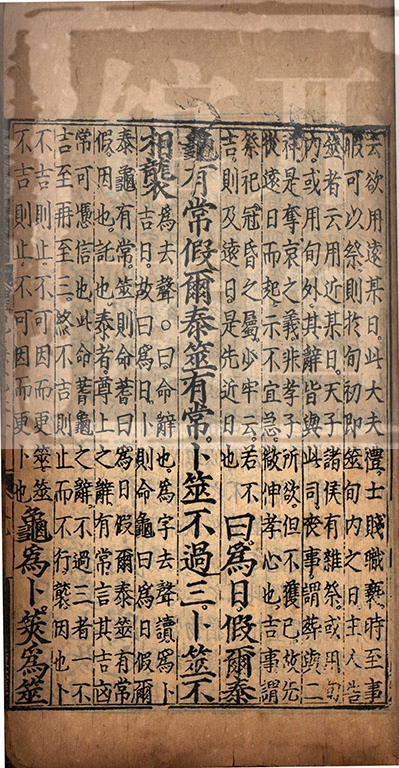 云欲用遠某日此大夫禮士賤職䙝時至事
暇可以祭則於旬初即筮旬內之日主人告
筮者云用近某日天子諸侯有雜祭或用旬
內或用旬外其辭皆與此同喪事謂葬與二
祥是奪哀之義非孝子所欲但不獲已故先
從遠日而起示不宜急微伸孝心也吉事謂
祭祀冠昏之屬少牢云若不
吉則及遠日是先近日也
曰爲日假爾泰
龜有常假爾泰筮有常卜筮不過三卜筮不
相襲
爲去聲○曰命辭也爲字去聲讀爲卜
吉日故曰爲日卜則命龜曰爲日假爾
泰龜有常筮則命蓍曰爲日假爾泰筮有常
假因也託也泰者尊上之辭有常言其吉凶
常可憑信也此命蓍龜之辭不過三者一不
吉至再至三終不吉則止而不行襲因也卜
不吉則止不可因而更筮筮
不吉則止不可因而更卜也
龜爲卜筴爲筮